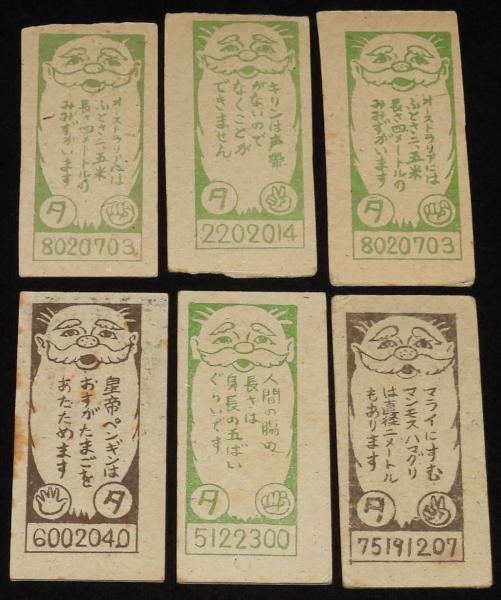 オーストラリアには
ふとさ二、五米
長さ四メートルの
みみずがいます
タ
8020703
キリンは声帯
がないので
なくことが
できません
タ
2202014
オーストラリアには
ふとさ二、五米
長さ四メートルの
みみずがいます
タ
8020703
皇帝ペンギンは
おすがたまごを
あたためます
タ
6002040
人間の腸の
長さは
身長の五ばい
ぐらいです
タ
5122300
マライにすむ
マンモスハマグリ
は直径二メートル
もあります
タ
75191207